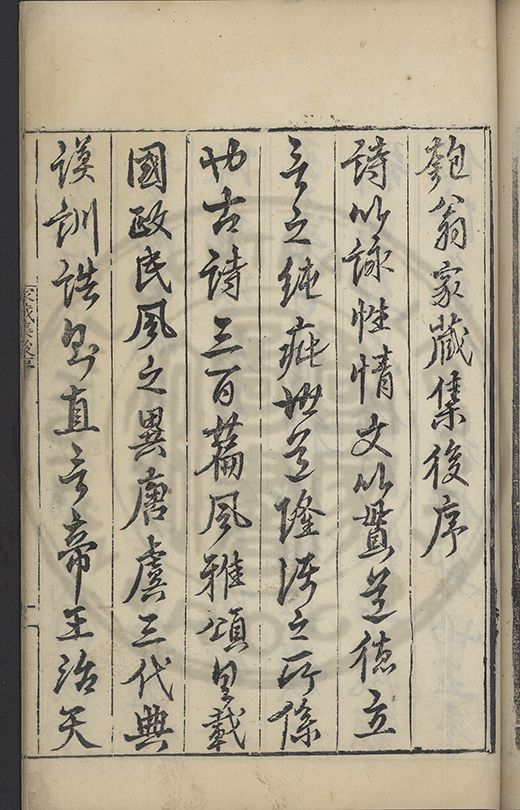 匏翁家藏集後序
詩以詠性情文以貫道德立
言之純疵世道隆汙之所係
也古詩三百篇風雅頌具載
國政民風之異唐虞三代典
謨訓誥多直言帝王治天
家藏集後序
一